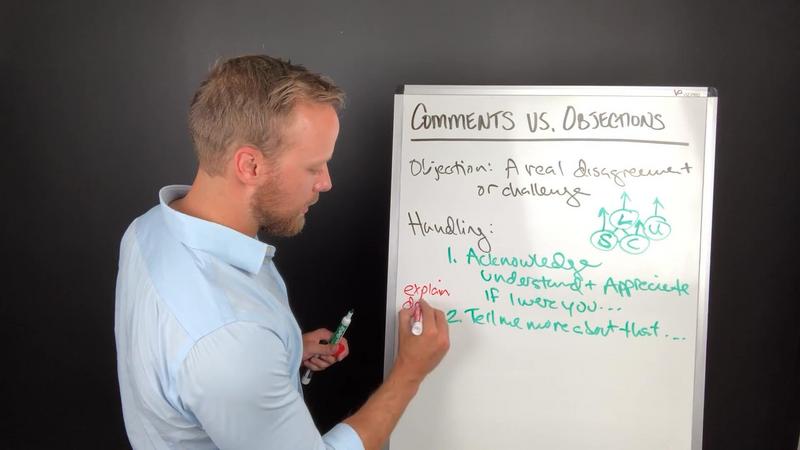 COMMENTS VS. OBJECTIONS
Objection: A real disagreement
or challenge
L U
S C
Handling:
1. Acknowledge
Understand + Appreciate
explain
If I were you...
2. Tell me more about that...